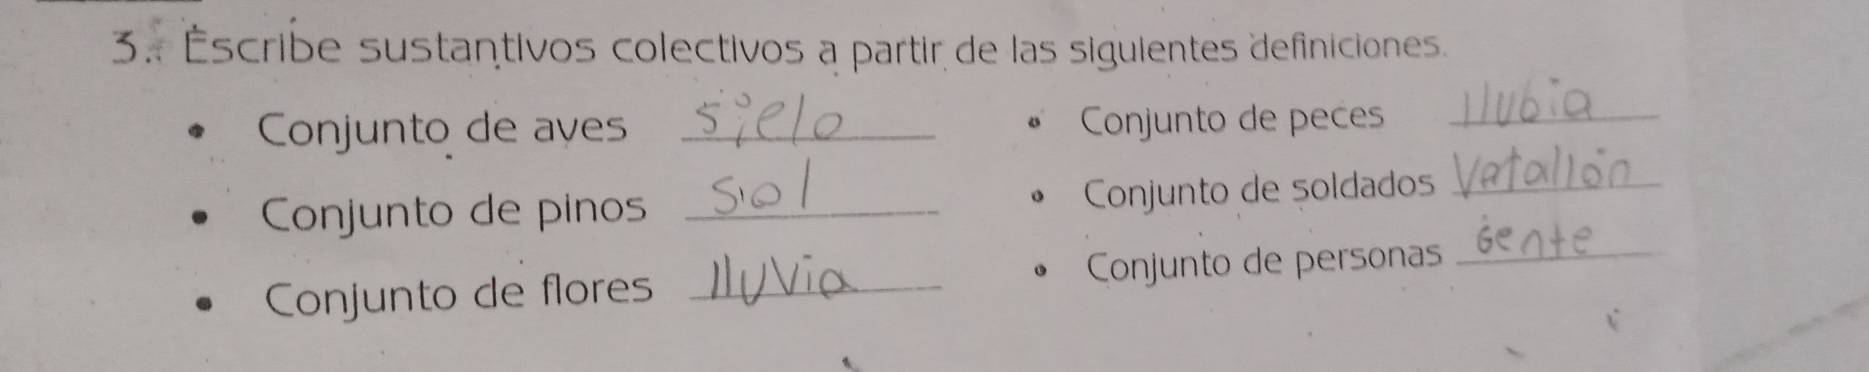 3. Escribe sustantivos colectivos a partir de las siguientes definiciones.
• Conjunto de aves sielo
• Conjunto de pinos Sol
• Conjunto de flores lluvia
• Conjunto de peces llubia
• Conjunto de soldados Vatallón
• Conjunto de personas Gente